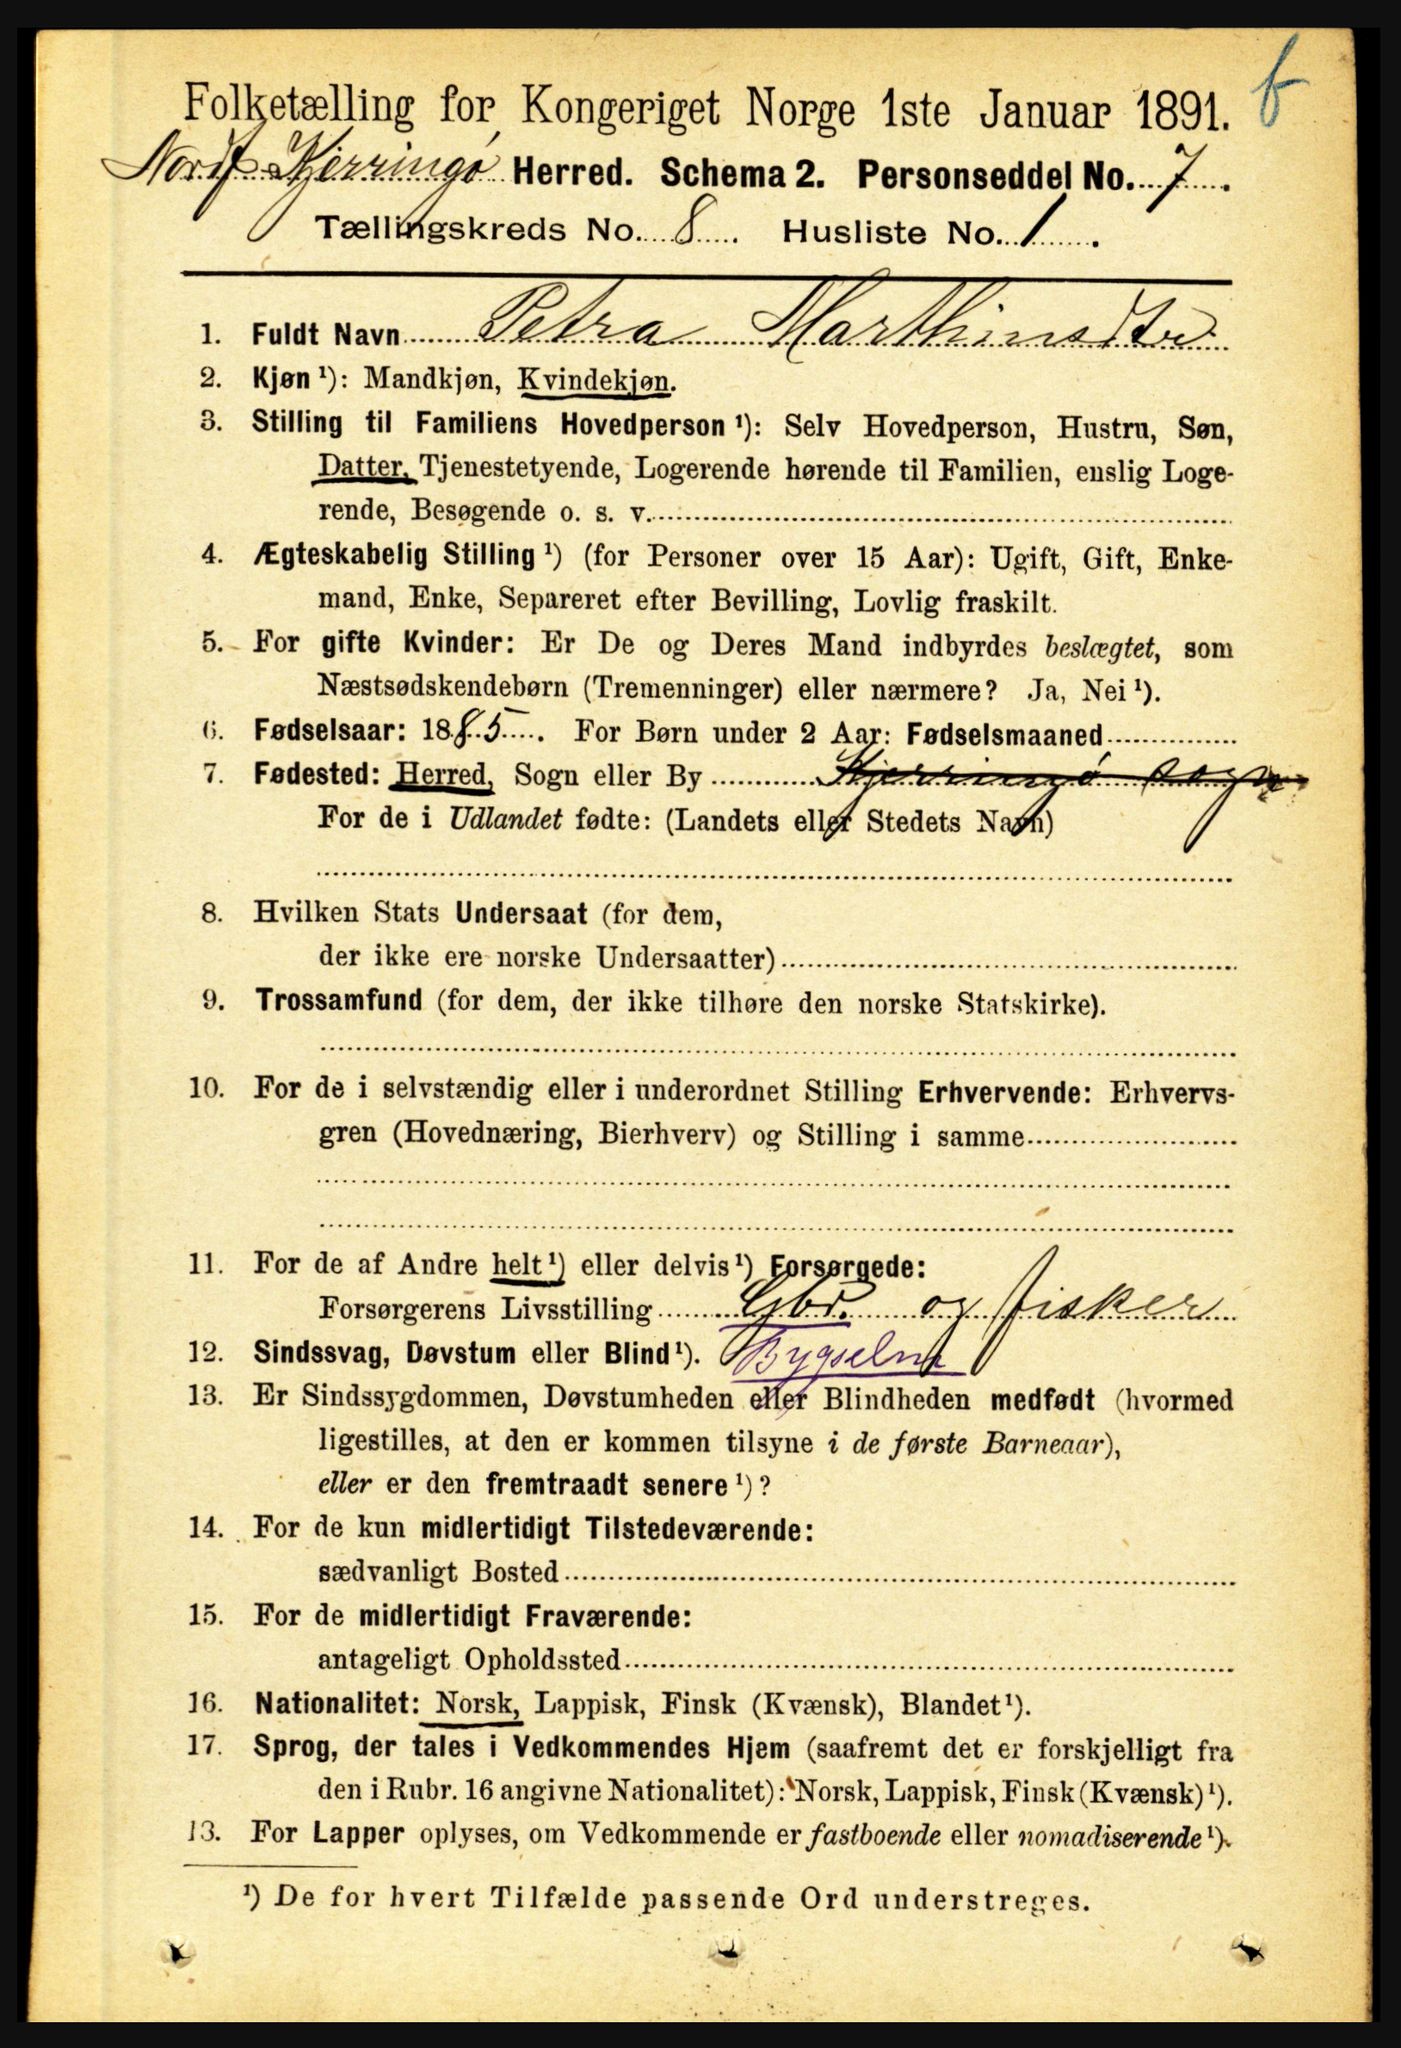 Folketælling for Kongeriget Norge 1ste Januar 1891. b
Nordf. Kjerringø Herred. Schema 2. Personseddel No. 7.
Tællingskreds No. 8. Husliste No. 1.
1. Fuldt Navn Petra Marthinsdtr
2. Kjøn ¹): Mandkjøn, Kvindekjøn.
3. Stilling til Familiens Hovedperson ¹): Selv Hovedperson, Hustru, Søn,
Datter, Tjenestetyende, Logerende hørende til Familien, enslig Loge-
rende, Besøgende o. s. v.
4. Ægteskabelig Stilling ¹) (for Personer over 15 Aar): Ugift, Gift, Enke-
mand, Enke, Separeret efter Bevilling, Lovlig fraskilt.
5. For gifte Kvinder: Er De og Deres Mand indbyrdes beslægtet, som
Næstsødskendebørn (Tremenninger) eller nærmere? Ja, Nei ¹).
6. Fødselsaar: 1885. For Børn under 2 Aar: Fødselsmaaned
7. Fødested: Herred, Sogn eller By Kjerringø sogn
For de i Udlandet fødte: (Landets eller Stedets Navn)
8. Hvilken Stats Undersaat (for dem,
der ikke ere norske Undersaatter)
9. Trossamfund (for dem, der ikke tilhøre den norske Statskirke).
10. For de i selvstændig eller i underordnet Stilling Erhvervende: Erhvervs-
gren (Hovednæring, Bierhverv) og Stilling i samme
11. For de af Andre helt ¹) eller delvis ¹) Forsørgede:
Forsørgerens Livsstilling Gbr. og fisker
12. Sindssvag, Døvstum eller Blind ¹). Bygselm
13. Er Sindssygdommen, Døvstumheden eller Blindheden medfødt (hvormed
ligestilles, at den er kommen tilsyne i de første Barneaar),
eller er den fremtraadt senere ¹)?
14. For de kun midlertidigt Tilstedeværende:
sædvanligt Bosted
15. For de midlertidigt Fraværende:
antageligt Opholdssted
16. Nationalitet: Norsk, Lappisk, Finsk (Kvænsk), Blandet ¹).
17. Sprog, der tales i Vedkommendes Hjem (saafremt det er forskjelligt fra
den i Rubr. 16 angivne Nationalitet): Norsk, Lappisk, Finsk (Kvænsk) ¹).
13. For Lapper oplyses, om Vedkommende er fastboende eller nomadiserende ¹).
¹) De for hvert Tilfælde passende Ord understreges.